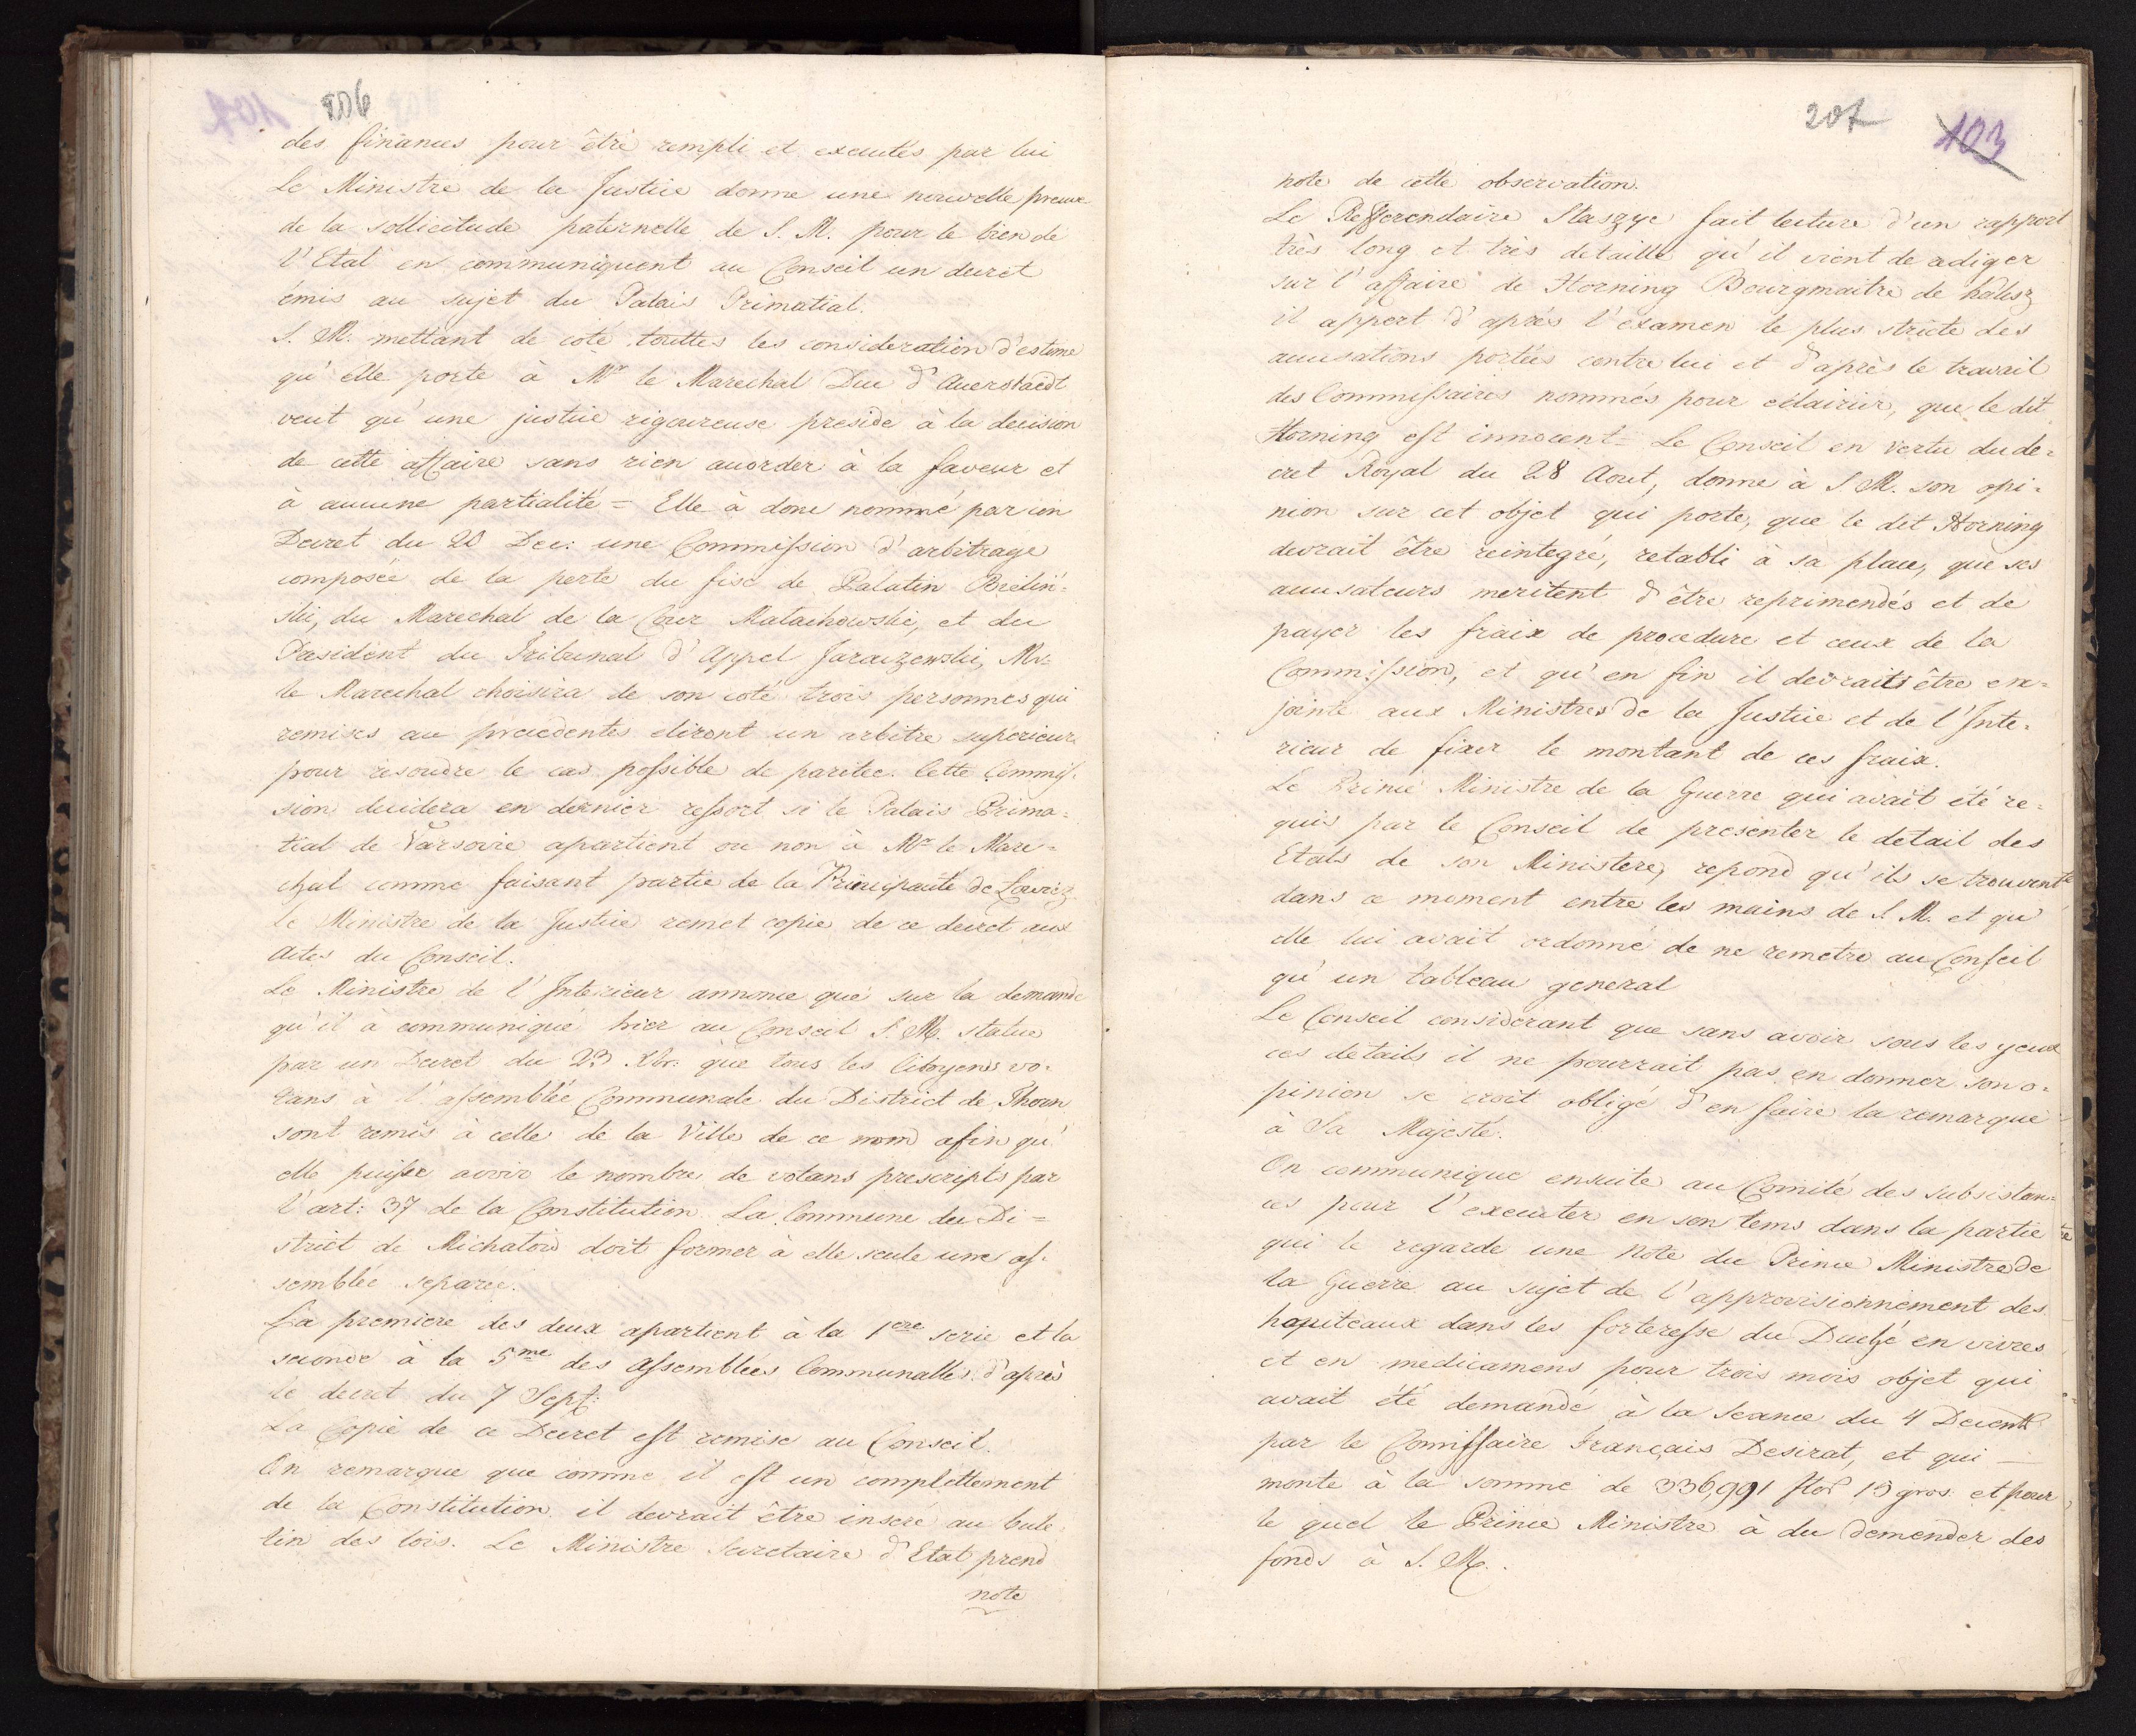 206
des finances pour être rempli et executés par lui
Le Ministre de la Justice donne une nouvelle preuve
de la sollicitude paternelle de S. M. pour le bien de
l'Etat en communiquent au Conseil un decret
émis au sujet du Palais Primatial.
S. M. mettant de coté touttes les consideration d'estime
qu'elle porte à Mr le Marechal Duc d'Auerstaedt
veut qu'une justice rigoureuse preside à la decision
de cette affaire sans rien accorder à la faveur et
à aucune partialité = Elle à donc nommé par un
Decret du 20 Dec: une Commission d'arbitrage
composée de la perte du fisc de Palatin Bielin=
ski, du Marechal de la Cour Malachowski, et du
President du Tribunal d'Appel Jaraczewski, Mr
le Marechal choisira de son coté trois personnes qui
remises au precedentes eliront un arbitre superieur
pour resoudre le cas possible de paritee. Cette Commis-
sion decidera en dernier ressort si le Palais Prima=
tial de Varsovie apartient ou non à Mr le Mare=
chal comme faisant partie de la Principauté de Lowicz
le Ministre de la Justice remet copie de ce decret aux
Actes du Conseil.
Le Ministre de l'Interieur annonce que sur la demande
qu'il à communiqué hier au Conseil S. M. statue
par un Decret du 23 Xbr: que tous les Citoyens vo-
tans à l'assemblée Communale du District de Thorn
sont remis à celle de la Ville de ce nom afin qu'
elle puisse avoir le nombre de votans prescripts par
l'art: 37 de la Constitution. La Commune du Di=
strict de Michalow doit former à elle seule une as-
semblée separée.
La premiere des deux apartient à la 1ere serie et la
seconde à la 5me des assemblées Communalles d'après
le decret du 7 Sept:
La Copie de ce Decret est remise au Conseil.
On remarque que comme il est un complettement
de la Constitution il devrait être inseré au bule-
tin des lois. Le Ministre Secretaire d'Etat prend
note
207
103
note de cette observation.
Le Refferendaire Staszyc fait lecture d'un rapport
très long et très detaillé qu'il vient de rediger
sur l'affaire de Horning Bourgmaitre de Kalisz
il appert d'après l'examen le plus stricte des
accusations portées contre lui et d'après le travail
des Commissaires nommés pour eclaircir, que le dit
Horning est innocent = Le Conseil en vertu du de=
cret Royal du 28 Aout, donne à S. M. son opi=
nion sur cet objet qui porte, que le dit Horning
devrait être reintegré, retabli à sa place, que ses
accusateurs meritent d'être reprimendés et de
payer les fraix de procedure et ceux de la
Commission, et qu'en fin il devraits être en=
jointe aux Ministres de la Justice et de l'Inte=
rieur de fixer le montant de ces fraix.
Le Prince Ministre de la Guerre qui avait été re=
quis par le Conseil de presenter le detail des
Etats de son Ministere, repond qu'ils se trouvent
dans ce moment entre les mains de S. M. et qu'
elle lui avait ordonné de ne remetre au Conseil
qu'un tableau general
Le Conseil considerant que sans avoir sous les yeux
ces details il ne pourrait pas en donner son o=
pinion se croit obligé d'en faire la remarque
à Sa Majesté.
On communique ensuite au Comité des subsistan=
ces pour l'executer en son tems dans la partie
qui le regarde une Note du Prince Ministre de
la Guerre au sujet de l'approvisionnement des
hopiteaux dans les forteresse du Duché en vivres
et en medicamens pour trois mois objet qui
avait été demandé à la Seance du 4 Decemb
par le Comissaire Français Desirat, et qui
monte à la somme de 336,991 flor 13 gros et pour
le quel le Prince Ministre à du demender des
fonds à S. M.